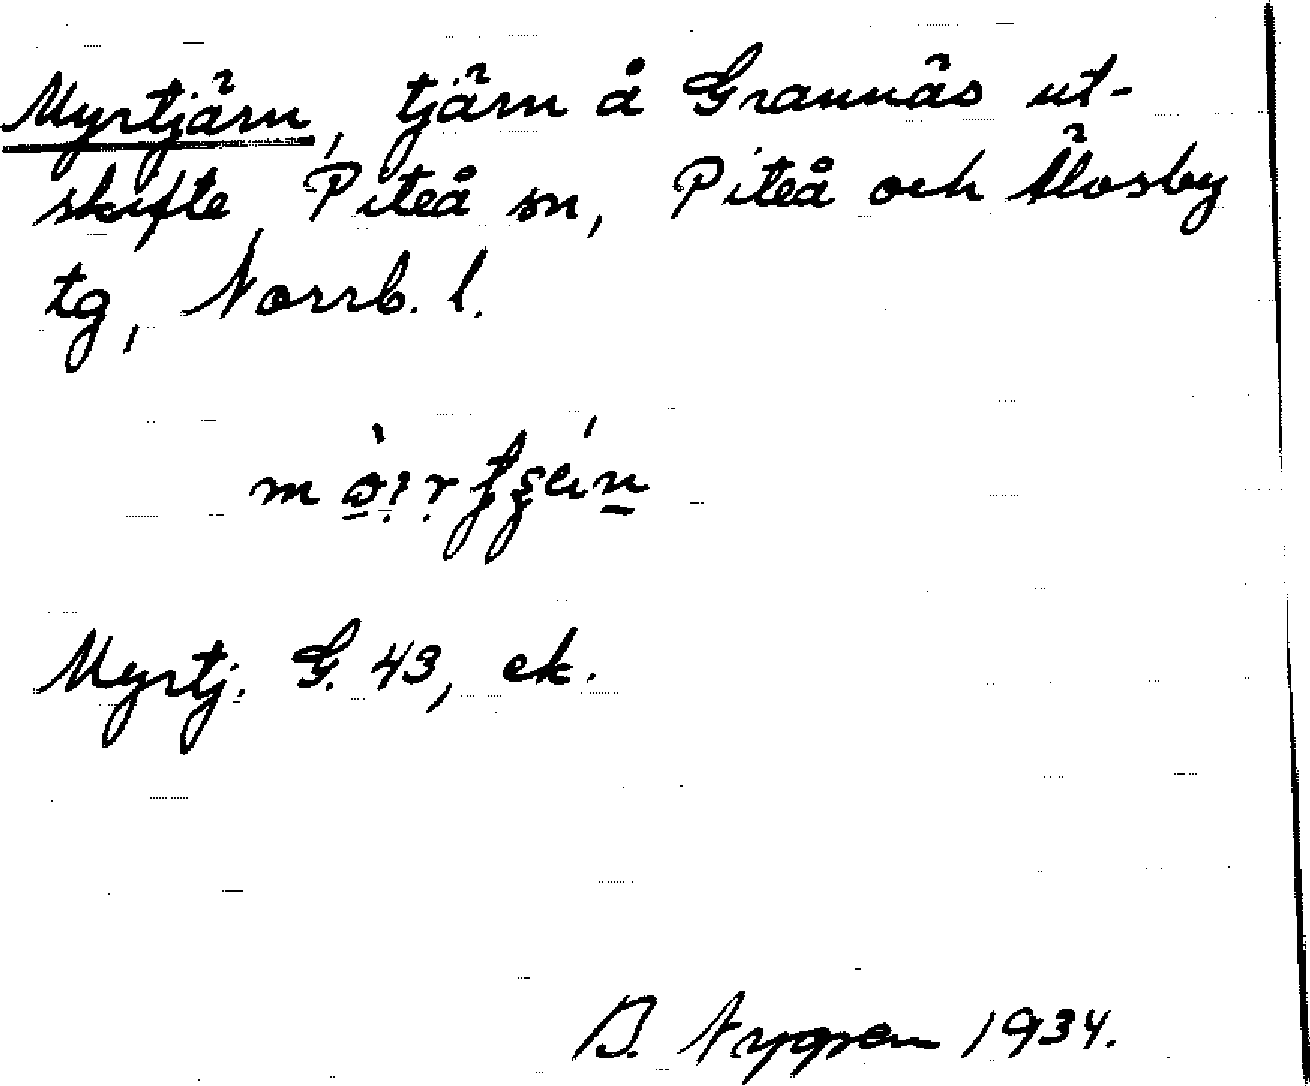 Myrtjärn, tjärn å Grannäs ut-
skifte, Piteå sn, Piteå och Älvsby
tg, Norrb. l.
Myrtj. G. 43, ek.
B. Nygren 1934.